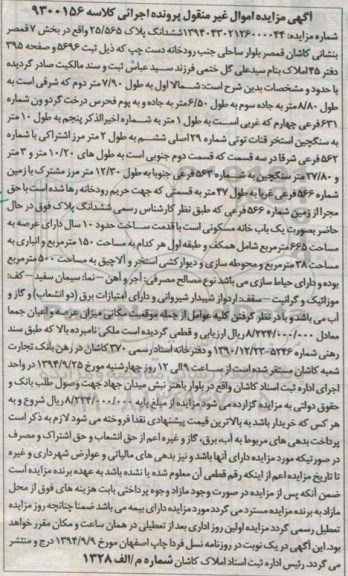 آگهی مزایده اموال غیر منقول پرونده اجرائی کلاسه ۹۳۰۰۱۵۶
شماره مزایده: ۱۳۹۴۰۴۳۰۲۱۲۶۰۰۰۰۴۴ ششدانگ پلاک ۲۵/۵۶۵ واقع در بخش ۷ قمصر
بنشانی کاشان قمصر بلوار ساحلی جنب رودخانه دست چپ که ذیل ثبت ۵۶۹۶ و صفحه ۳۹۵
دفتر ۴۵ املاک بنام سیدعلی گل ختمی فرزند سید عباس ثبت و سند مالکیت صادر گردیده
با حدود و مشخصات بدین شرح است: شمالا اول به طول ۷/۹۰ متر دوم که شرقی است به
طول ۸/۸۰ متر به جاده سوم به طول ۶/۵۰ متر به جاده و به پوم فحرس درخت گردو ون شماره
۶۳۱ فرعی چهارم که غربی است به طول ۱ متر به شماره اخیرالذکر پنجم به طول ۱۰ متر
به سنگچین استخر قنات تونی شماره ۲۹ اصلی ششم به طول ۲ متر مرز اشتراکی با شماره
۵۶۲ فرعی شرقا در سه قسمت که قسمت دوم جنوبی است به طول های ۱۰/۲۰ متر و ۳ متر
و ۲۷/۸۰ متر سنگچین به شماره ۵۶۳ فرعی جنوبا به طول ۱۲/۳۰ متر مرز مشترک با زمین
شماره ۵۶۶ فرعی غربا به طول ۴۷ متر به قسمتی که جهت حریم رودخانه رها شده است با حق
مجرا از زمین شماره ۵۶۶ فرعی که طبق نظر کارشناس رسمی ششدانگ پلاک فوق در حال
حاضر بصورت یک باب خانه مسکونی است با قدمت ساخت حدود ۱۰ سال دارای عرصه به
مساحت ۶۶۵ مترمربع شامل همکف و طبقه اول هر کدام به مساحت ۱۵۰ مترمربع و انباری به
مساحت ۲۸ مترمربع و محوطه سازی و دیوار کشی استخر و آلاچیق به مساحت ۵۰۰ مترمربع
بوده و دارای حیاط سازی می باشد نوع مصالح مصرفی: آجر و آهن - نما: سیمان سفید - کف:
موزائیک و گرانیت - سقف: اردواز شیبدار شیروانی و دارای امتیازات برق (دو انشعاب) و گاز و
آب می باشد و با در نظر گرفتن کلیه عوامل از جمله موقعیت مکانی میزان عرصه و اعیان جمعا
معادل ۸/۲۲۴/۰۰۰/۰۰۰ ریال ارزیابی و قطعی گردیده است ملکی نامبرده بالا که طبق سند
رهنی شماره ۵۲۴۶-۱۳۹۰/۱۲/۲۳ و دفترخانه اسناد رسمی ۳۷۰ کاشان در رهن بانک تجارت
شعبه کاشان مستقر شده است از ساعت ۹ الی ۱۲ روز چهارشنبه مورخ ۱۳۹۴/۹/۲۵ در واحد
اجرای اداره ثبت اسناد کاشان واقع در بلوار باهنر نبش میدان جهاد جهت وصول طلب بانک و
حقوق دولتی به مزایده گزارده می شود مزایده از مبلغ پایه ۸/۲۲۴/۰۰۰/۰۰۰ ریال شروع و به
هر کس که خریدار باشد به بالاترین قیمت پیشنهادی نقدا فروخته می شود لازم به ذکر است
پرداخت بدهی های مربوط به آب، برق، گاز و غیره اعم از حق انشعاب و حق اشتراک و مصرف
در صورتیکه مورد مزایده دارای آنها باشد و نیز بدهی های مالیاتی و عوارض شهرداری و غیره
تا تاریخ مزایده اعم از اینکه رقم قطعی آن معلوم شده یا نشده باشد به عهده برنده مزایده است
ضمن آنکه پس از مزایده در صورت وجود مازاد وجوه پرداختی بابت هزینه های فوق از محل
مازاد به برنده مزایده مسترد می گردد مورد مزایده دارای بیمه می باشد ضمنا چنانچه روز مزایده
تعطیل رسمی گردد مزایده اولین روز اداری بعد از تعطیلی در همان ساعت و مکان مقرر خواهد
بود. این آگهی در یک نوبت در روزنامه نسل فردا چاپ اصفهان مورخ ۱۳۹۴/۹/۹ درج و منتشر
می گردد. رئیس اداره ثبت اسناد املاک کاشان شماره م/الف ۱۳۲۸